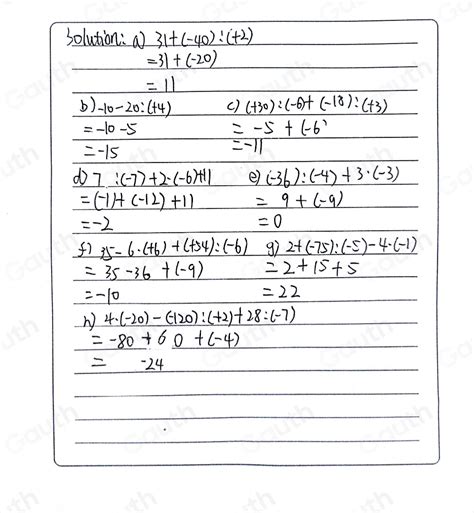 Solution: a) 31+(-40):(+2)
=31+(-20)
=11
b) -10-20:(+4)
=-10-5
=-15
c) (+30):(-6)+(-18):(+3)
=-5+(-6)
=-11
d) 7:(-7)+2·(-6)+11
=(-1)+(-12)+11
=-2
e) (-36):(-4)+3·(-3)
=9+(-9)
=0
f) 35-6·(+6)+(+54):(-6)
=35-36+(-9)
=-10
g) 2+(-75):(-5)-4·(-1)
=2+15+5
=22
h) 4·(-20)-(-120):(+2)+28:(-7)
=-80+60+(-4)
= -24
Gauth